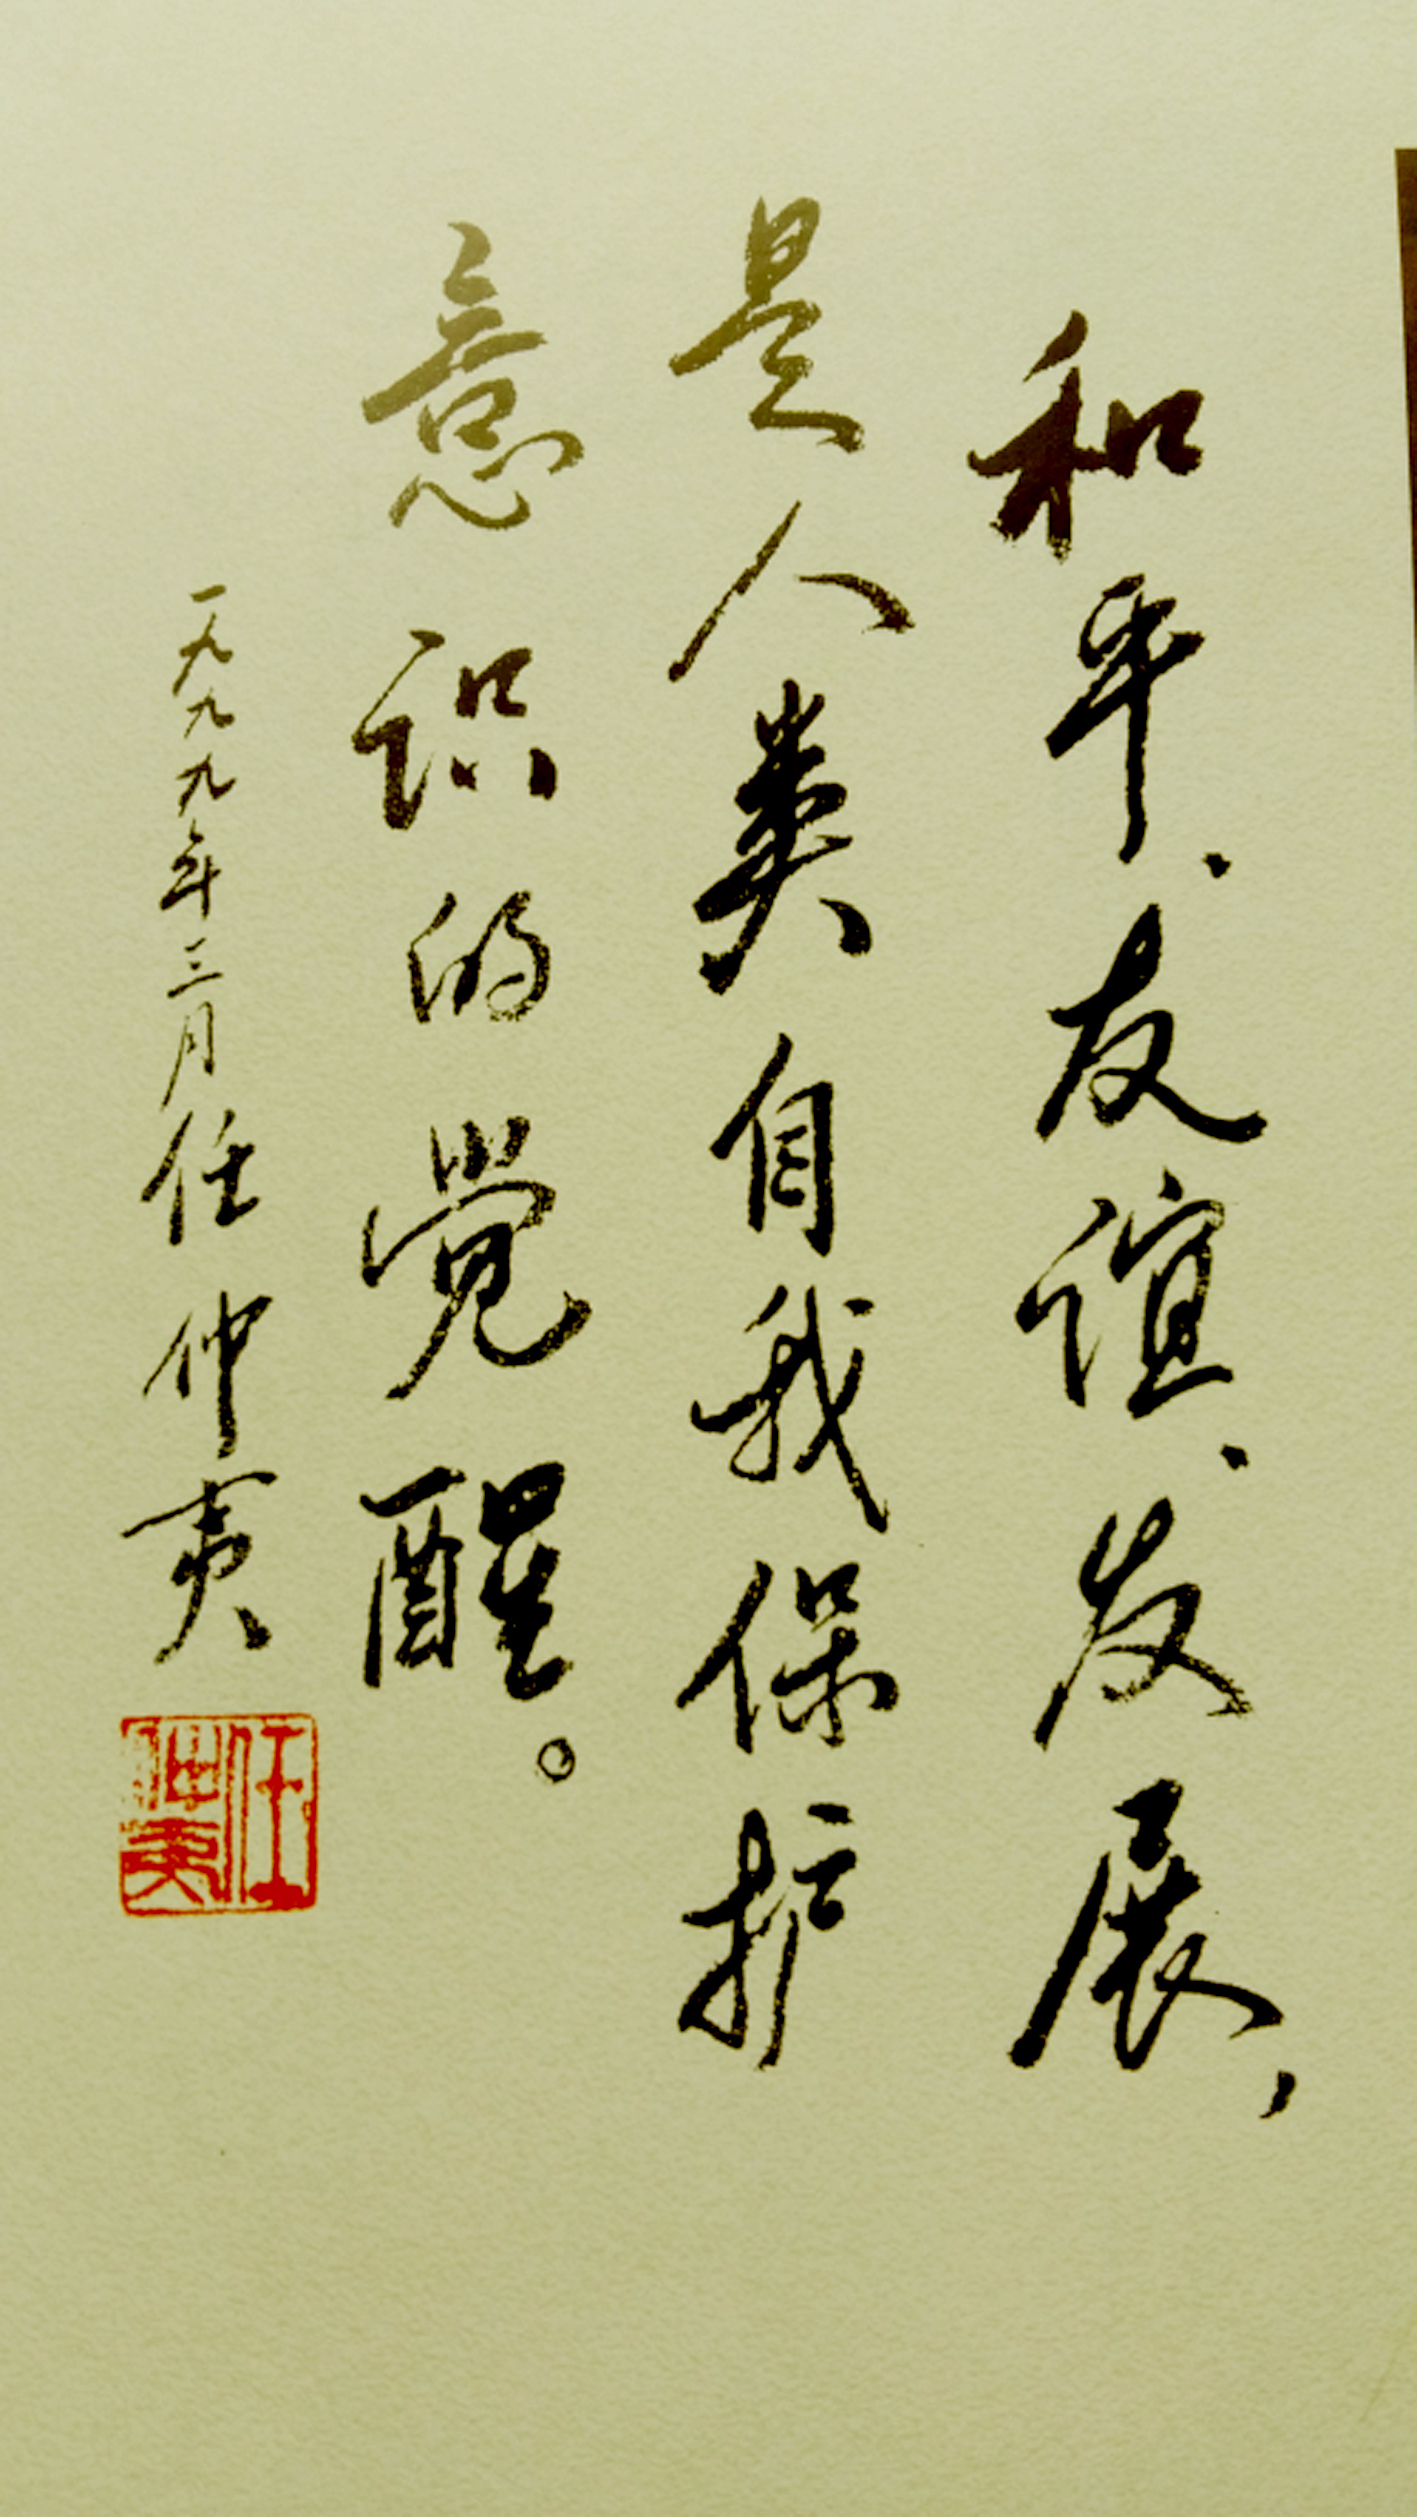 和平、友谊、发展，
是人类自我保护
意识的觉醒。
一九九九年三月任仲夷
任仲夷